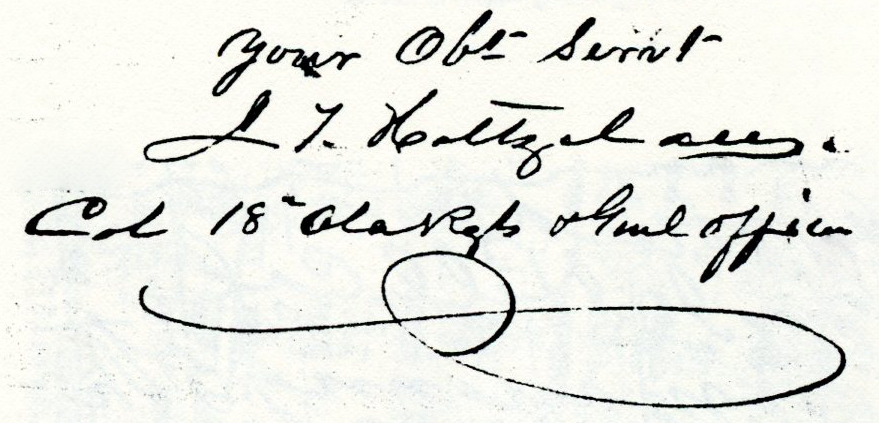 Your Obt Servt
J T. Holtzclaw.
Col 18" Ala Regt & Genl officer